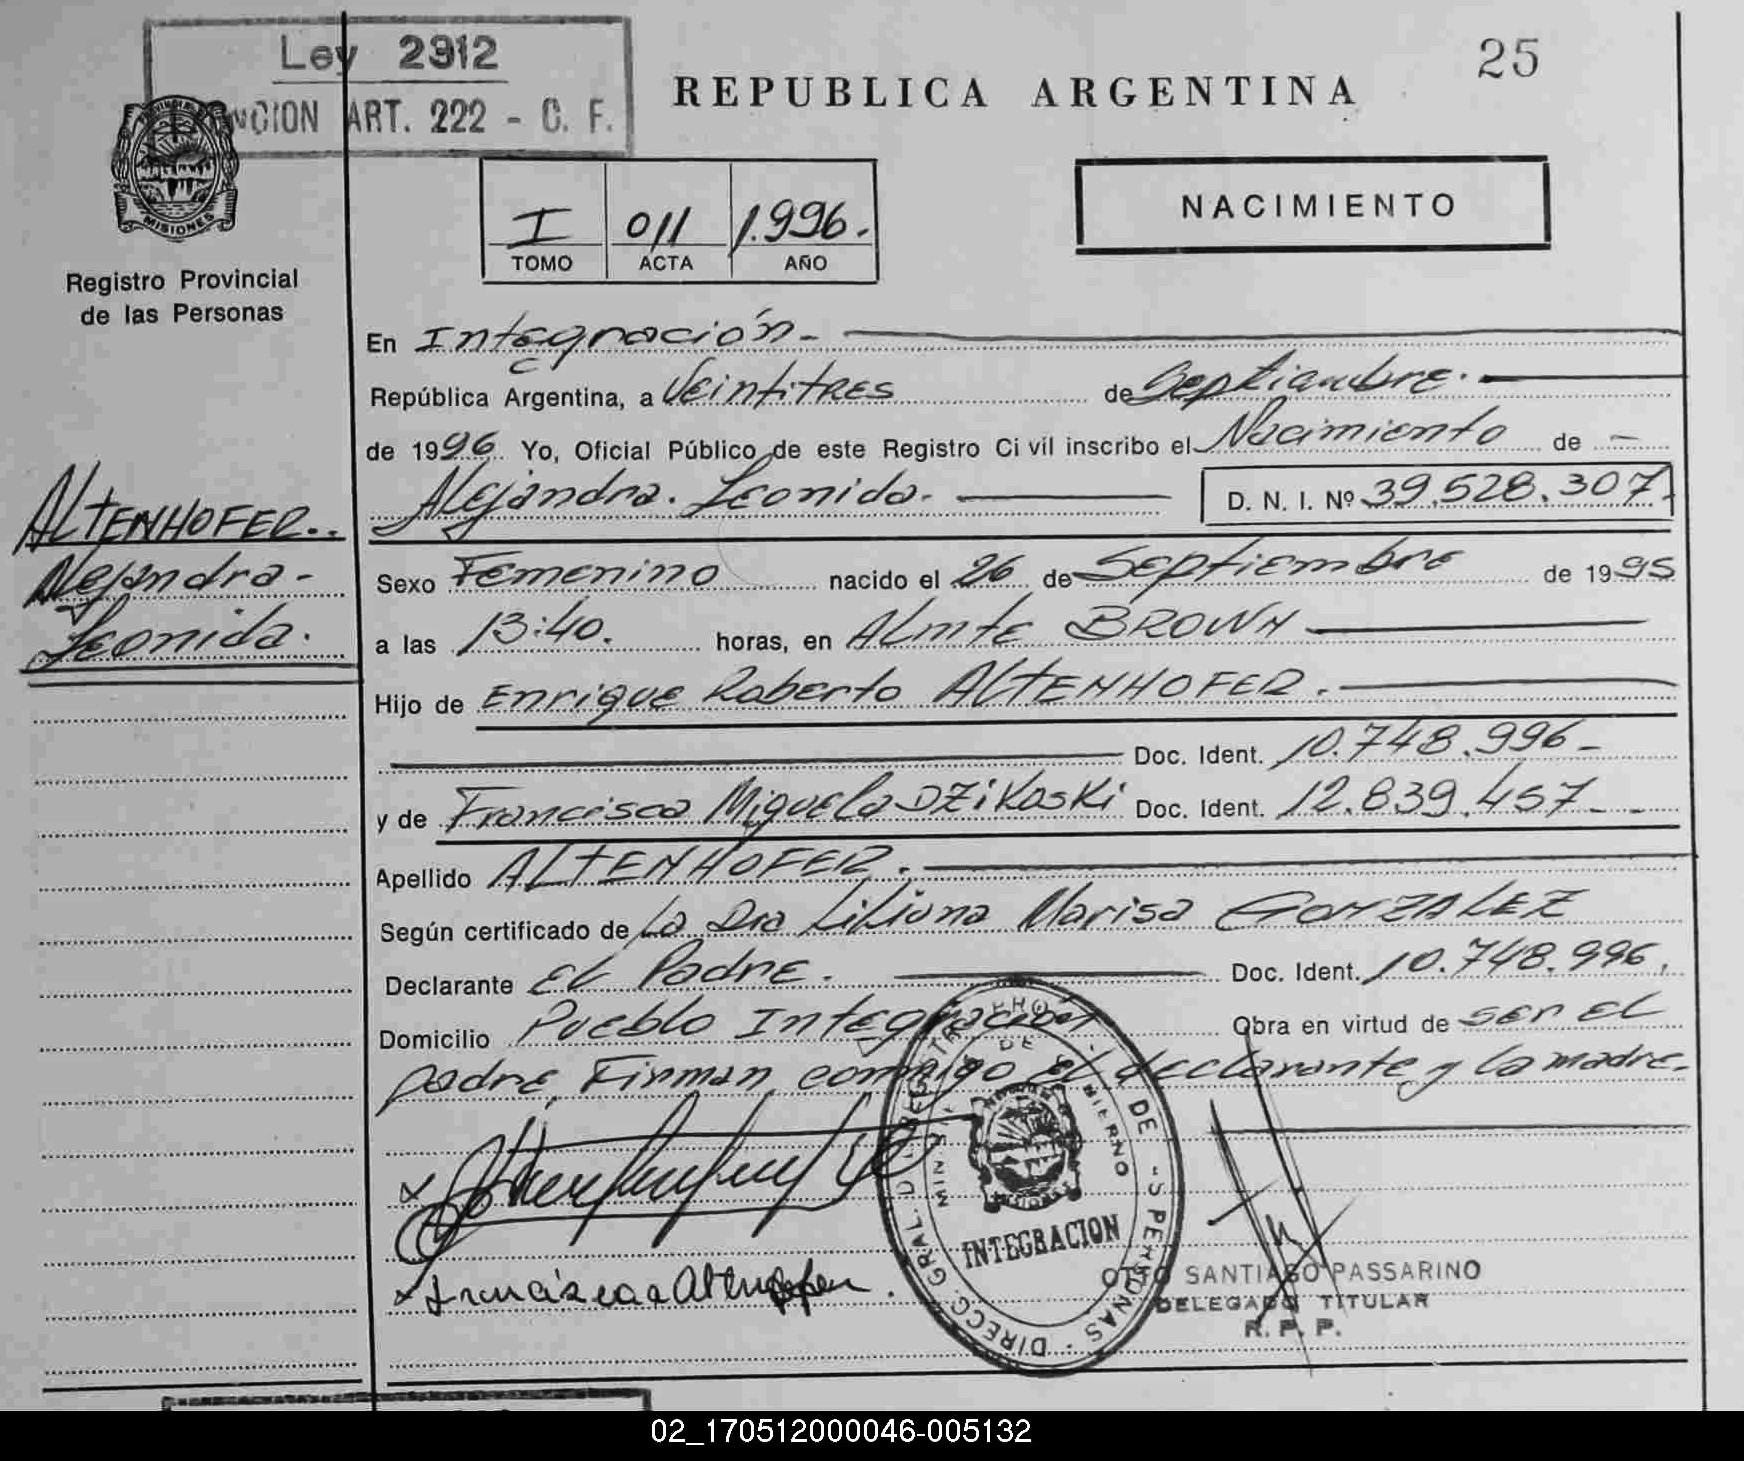 Ley 2912
NCION ART. 222 - C. F.
25
REPUBLICA ARGENTINA
MISIONES
Registro Provincial
de las Personas
I 011 1.996.
TOMO ACTA AÑO
NACIMIENTO
En Integración.-
República Argentina, a Veintitres de Septiembre.
de 1996. Yo, Oficial Público de este Registro Civil inscribo el Nacimiento de —
Alejandra. Leonida.- D. N. I. Nº 39.528.307.
ALTENHOFER..
Alejandra.-
Leonida.
Sexo Femenino nacido el 26 de Septiembre de 1995
a las 13:40. horas, en ALmte BROWN
Hijo de Enrique Roberto ALTENHOFER.
Doc. Ident. 10.748.996-
y de Francisca Miguela DZiKosKi Doc. Ident. 12.839.457-
Apellido ALTENHOFER.
Según certificado de La Dra Liliana Marisa GONZALEZ
Declarante EL Padre. Doc. Ident. 10.748.996.
Domicilio Pueblo Integración Obra en virtud de ser EL
padre, Firman conmigo el declarante y la madre.
x
x Francisca Altenhofer.
DIRECC. GRAL. DE PERSONAS
MISIONES
INTEGRACION
OTTO SANTIAGO PASSARINO
DELEGADO TITULAR
R. P. P.
02_170512000046-005132